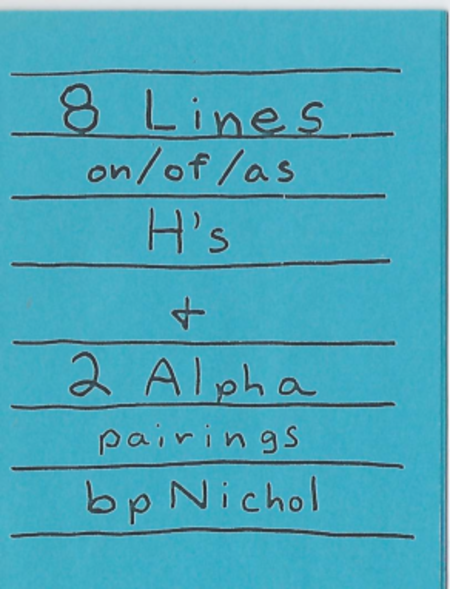 8 Lines
on/of/as
H's
+
2 Alpha
pairings
bpNichol